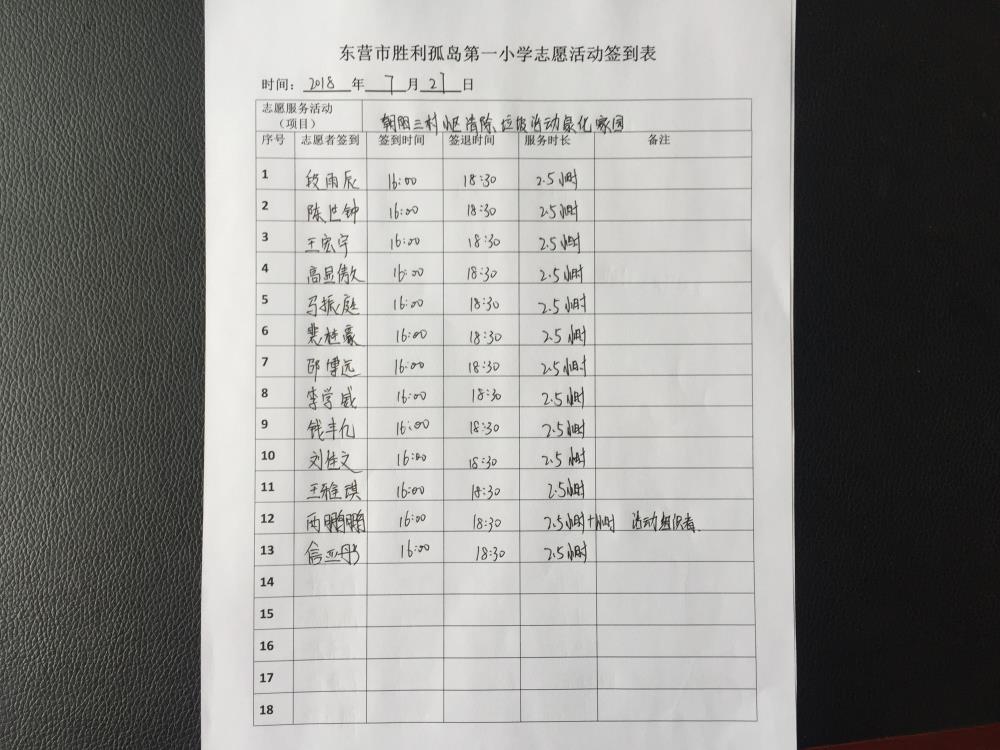 东营市胜利孤岛第一小学志愿活动签到表
时间：2018 年 7 月 27 日
志愿服务活动（项目） 朝阳三村小区清除垃圾活动绿化家园
序号 志愿者签到 签到时间 签退时间 服务时长 备注
1 段雨辰 16:00 18:30 2.5小时
2 陈世钟 16:00 18:30 2.5小时
3 王宏宇 16:00 18:30 2.5小时
4 高显傲 16:00 18:30 2.5小时
5 马振庭 16:00 18:30 2.5小时
6 裴桂豪 16:00 18:30 2.5小时
7 邵博远 16:00 18:30 2.5小时
8 李学威 16:00 18:30 2.5小时
9 钱丰亿 16:00 18:30 2.5小时
10 刘佳文 16:00 18:30 2.5小时
11 王雅琪 16:00 18:30 2.5小时
12 鹏鹏 16:00 18:30 2.5小时+1小时 活动组织者.
13 信亚丹 16:00 18:30 2.5小时
14
15
16
17
18